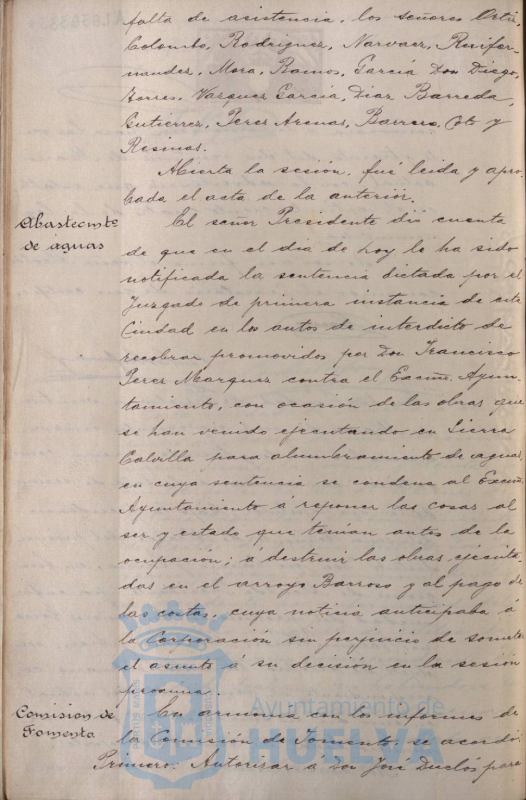 falta de asistencia, los señores Ortiz,
Colombo, Rodriguez, Narvaez, Ruifer-
nandez, Mora, Ramos, García Don Diego,
Torres, Vazquez García, Diaz Barreda,
Gutiérrez, Perez Arenas, Barrero, Coto y
Resinas.
Abierta la sesión, fué leida y apro-
bada el acta de la anterior.
Abastecmtº
de aguas
El señor Presidente dió cuenta
de que en el dia de hoy le ha sido
notificada la sentencia dictada por el
Juzgado de primera instancia de esta
Ciudad en los autos de interdicto de
recobrar promovidos por Don Francisco
Perez Marquez contra el Excmo. Ayun-
tamiento, con ocasión de las obras que
se han venido ejecutando en Sierra
Calvilla para alumbramiento de aguas,
en cuya sentencia se condena al Excmo.
Ayuntamiento á reponer las cosas al
ser y estado que tenian antes de la
ocupación; á destruir las obras ejecuta-
das en el arroyo Barroso y al pago de
las costas, cuya noticia anticipaba á
la Corporación sin perjuicio de someter
el asunto á su decisión en la sesión
proxima.
Comision de
Fomento
En armonia con los informes de
la Comisión de Fomento, se acordó:
Primero: Autorizar á Don José Duclós para
Ayuntamiento de
HUELVA